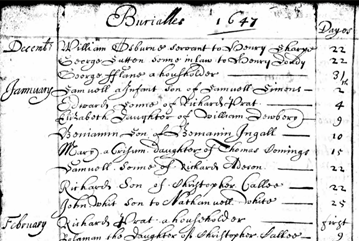 Burialles 1647
Dayes
Decemb: William Osburne servant to Henry Sharpe 22
George Sutten sonne in law to Henry 22
George fflane a housholder 31
Jannuary Samuell a Infant Son of Samuell Simons 2
Edward Sonne of Richard Prat 4
Elizabeth Daughter of William Newberg 9
Beniamin Son of Bemanin Ingall 10
Mary a Daughter of Thomas Domings 15
Samuell Sonne of Richard Aderon 22
Richard Son of Christopher Callee 22
John White Son to Nathanuell white 25
February Richard Prat a housholder first
the Daughter of Christopher Callee 9